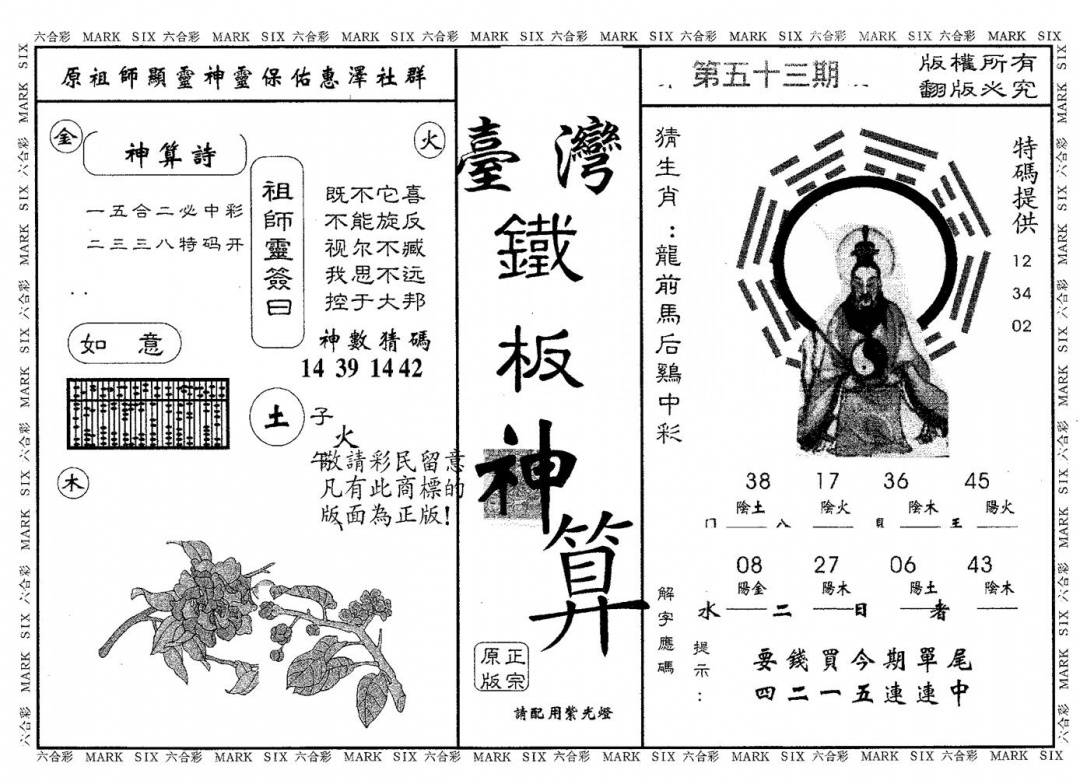 六合彩 MARK SIX 六合彩 MARK SIX 六合彩 MARK SIX 六合彩 MARK SIX 六合彩 MARK SIX 六合彩 MARK SIX 六合彩 MARK SIX 六合彩 MARK SIX
原祖師顯靈神靈保佑惠澤社群
金
火
神算詩
一五合二必中彩
二三三八特码开
祖師靈簽曰
既不它喜
不能旋反
视尔不臧
我思不远
控于大邦
神數猜碼
14 39 14 42
如 意
土
子
火
午
木
敬請彩民留意
凡有此商標的
版面為正版!
臺灣
鐵
板
神
算
正宗
原版
請配用紫光燈
第五十三期
版權所有
翻版必究
猜生肖:龍前馬后鷄中彩
特碼提供
12
34
02
38 17 36 45
陰土 陰火 陰木 陽火
08 27 06 43
陽金 陽木 陽土 陰木
水 二 日 者
解字應碼
提示:
要錢買今期單尾
四二一五連連中
六合彩 MARK SIX 六合彩 MARK SIX 六合彩 MARK SIX 六合彩 MARK SIX 六合彩 MARK SIX 六合彩 MARK SIX 六合彩 MARK SIX 六合彩 MARK SIX